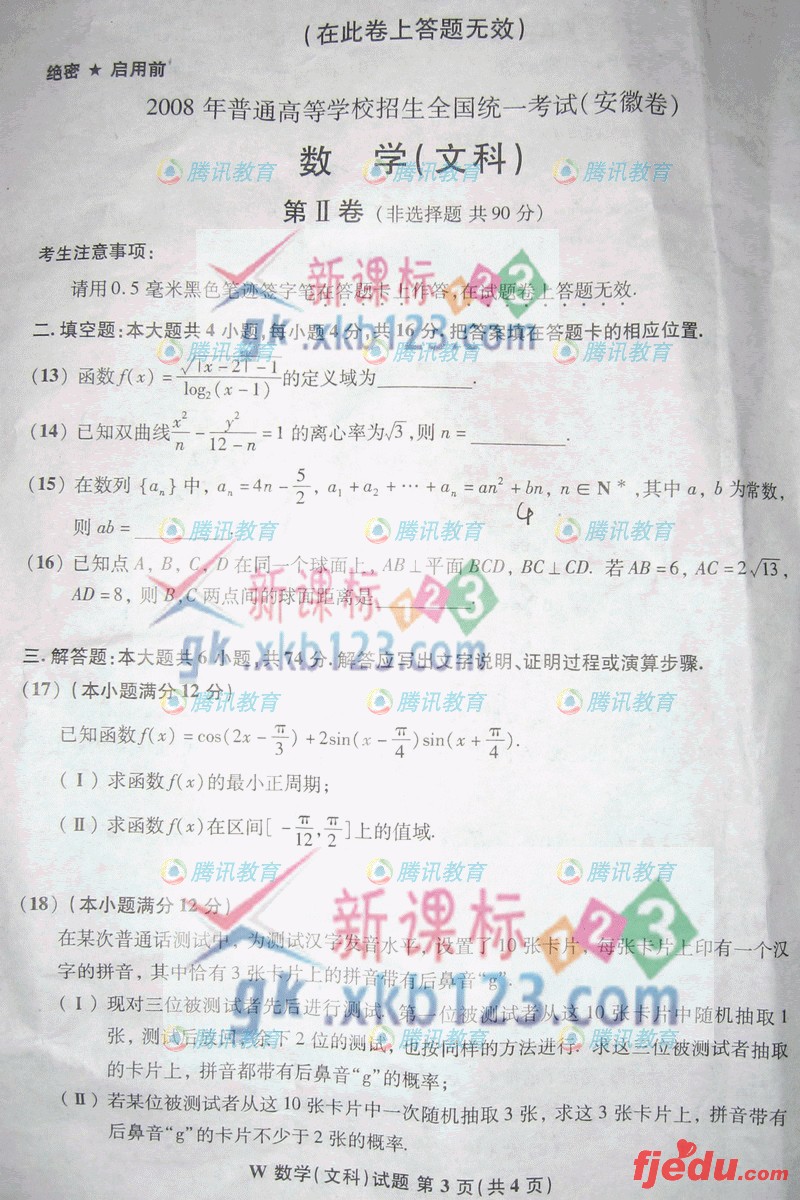 (在此卷上答题无效)
绝密 ★ 启用前
2008 年普通高等学校招生全国统一考试(安徽卷)
数 学(文科)
第Ⅱ卷 (非选择题 共90分)
考生注意事项:
请用0.5毫米黑色笔迹签字笔在答题卡上作答,在试题卷上答题无效.
二.填空题:本大题共4小题,每小题4分,共16分.把答案填在答题卡的相应位置.
(13) 函数f(x) = √(|x-2|-1) / log₂(x-1) 的定义域为________.
(14) 已知双曲线 x²/n - y²/(12-n) = 1 的离心率为√3,则 n = ________.
(15) 在数列 {aₙ} 中, aₙ = 4n - 5/2, a₁ + a₂ + … + aₙ = an² + bn, n ∈ N*, 其中 a, b 为常数,
则 ab = ________.
4
(16) 已知点 A, B, C, D 在同一个球面上, AB⊥平面 BCD, BC⊥CD. 若 AB = 6, AC = 2√13,
AD = 8, 则 B,C 两点间的球面距离是________.
三.解答题:本大题共6小题,共74分.解答应写出文字说明、证明过程或演算步骤.
(17) (本小题满分12分)
已知函数f(x) = cos(2x - π/3) + 2sin(x - π/4)sin(x + π/4).
(Ⅰ) 求函数 f(x)的最小正周期;
(Ⅱ) 求函数 f(x)在区间[-π/12, π/2]上的值域.
(18) (本小题满分12分)
在某次普通话测试中, 为测试汉字发音水平, 设置了10张卡片, 每张卡片上印有一个汉
字的拼音, 其中恰有3张卡片上的拼音带有后鼻音“g”.
(Ⅰ) 现对三位被测试者先后进行测试. 第一位被测试者从这10张卡片中随机抽取1
张, 测试后放回, 余下2位的测试, 也按同样的方法进行. 求这三位被测试者抽取
的卡片上, 拼音都带有后鼻音“g”的概率;
(Ⅱ) 若某位被测试者从这10张卡片中一次随机抽取3张, 求这3张卡片上, 拼音带有
后鼻音“g”的卡片不少于2张的概率.
W 数学(文科)试题 第 3 页(共 4 页)
腾讯教育 腾讯教育 腾讯教育
新课标123
gk.xkb123.com
腾讯教育 腾讯教育 腾讯教育
腾讯教育 腾讯教育 腾讯教育
新课标123
gk.xkb123.com
腾讯教育 腾讯教育 腾讯教育
腾讯教育 腾讯教育 腾讯教育
新课标123
gk.xkb123.com
腾讯教育 腾讯教育 腾讯教育
fjedu.com